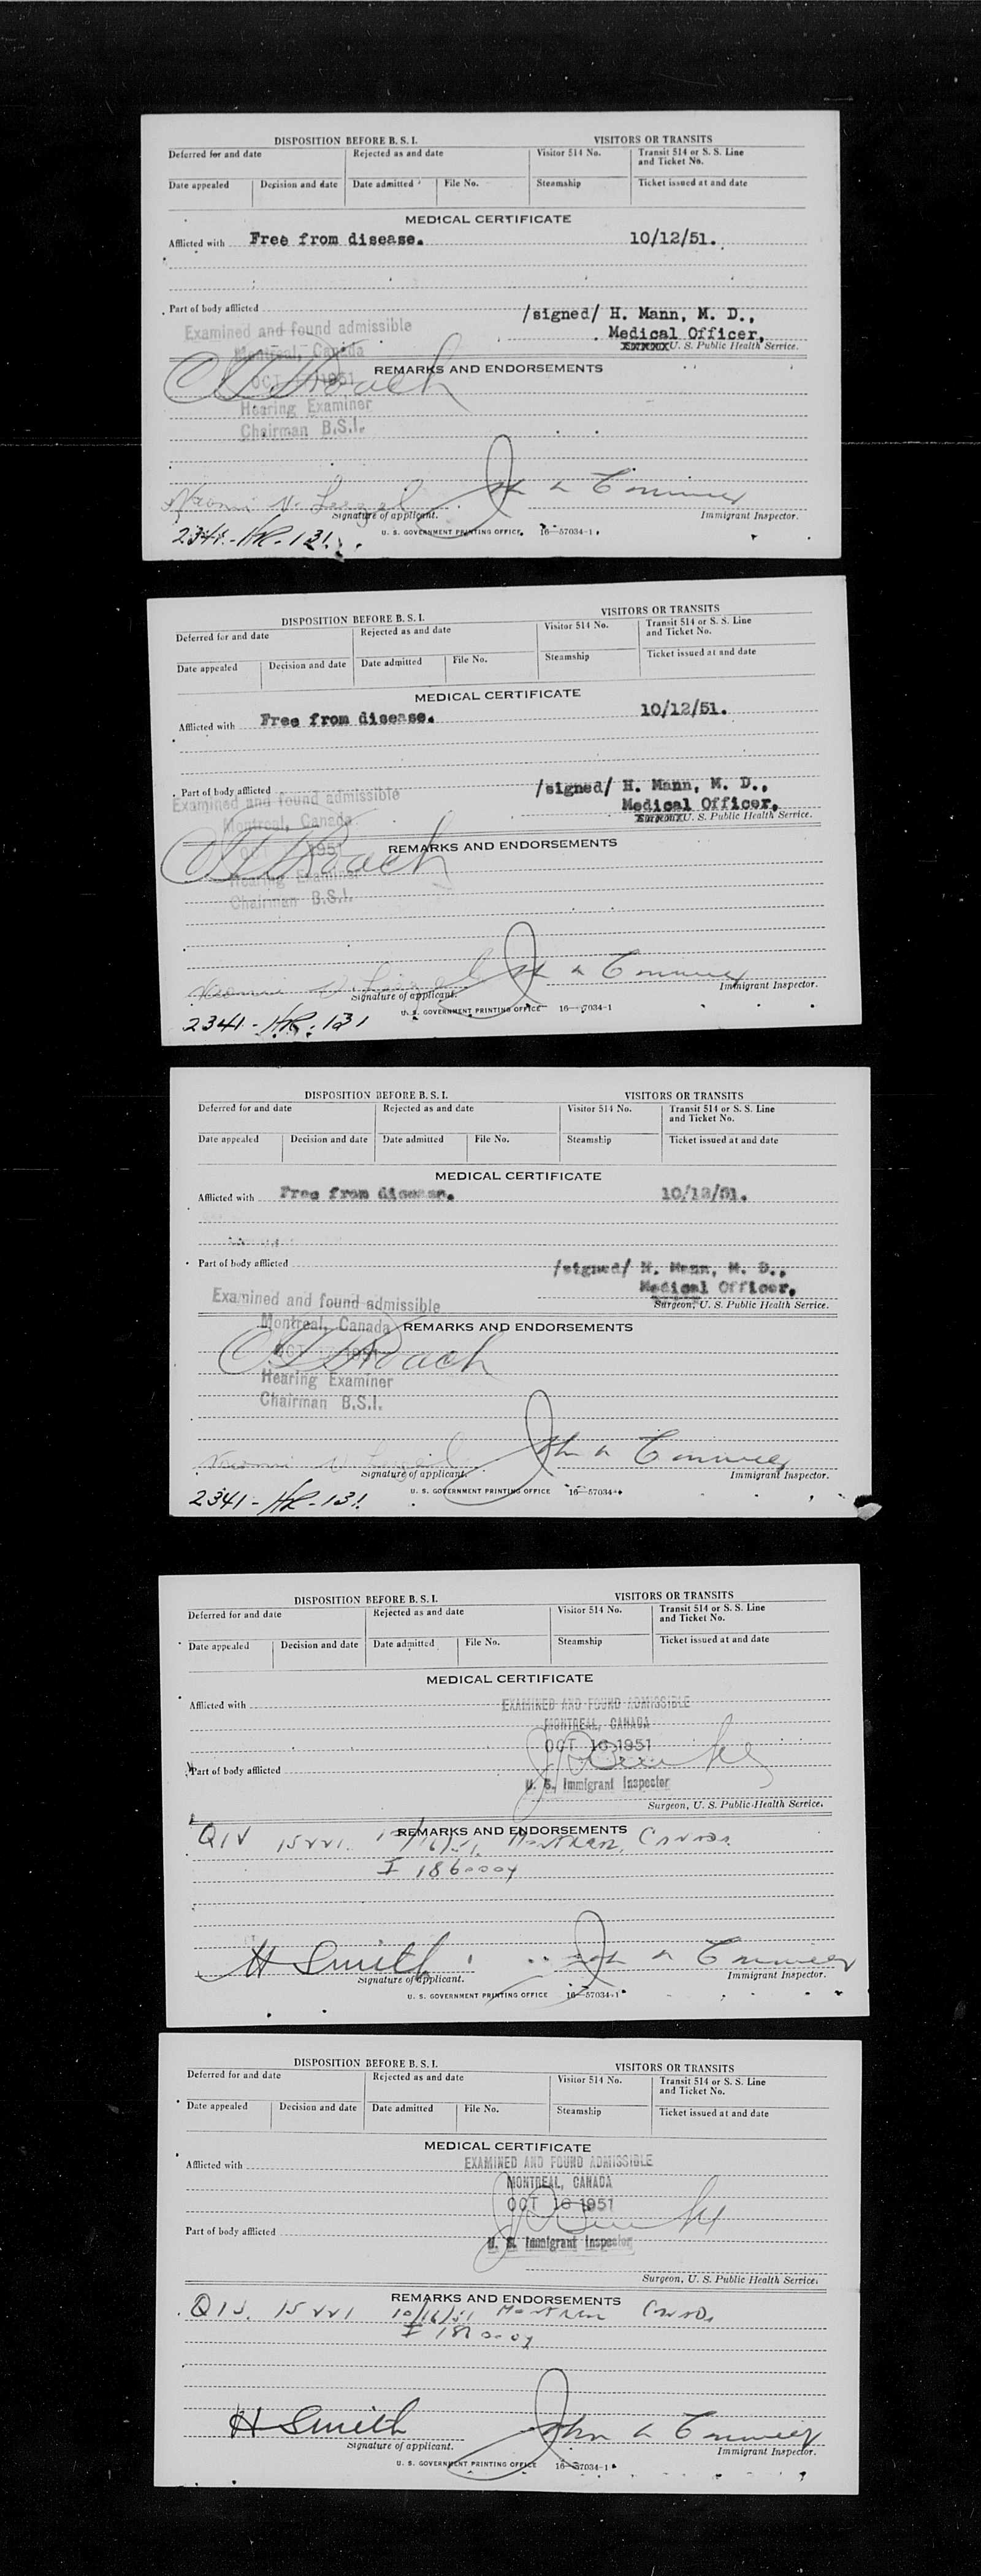 DISPOSITION BEFORE B. S. I. VISITORS OR TRANSITS
Deferred for and date Rejected as and date Visitor 514 No. Transit 514 or S. S. Line and Ticket No.
Date appealed Decision and date Date admitted File No. Steamship Ticket issued at and date
MEDICAL CERTIFICATE
Afflicted with Free from disease. 10/12/51.
Part of body afflicted
/signed/ H. Mann, M. D.,
Medical Officer,
U. S. Public Health Service.
Examined and found admissible
Montreal, Canada
OCT 1951
REMARKS AND ENDORSEMENTS
Roach
Hearing Examiner
Chairman B.S.I.
Signature of applicant. Immigrant Inspector.
2341-HR-131
U. S. GOVERNMENT PRINTING OFFICE 16—57034-1
DISPOSITION BEFORE B. S. I. VISITORS OR TRANSITS
Deferred for and date Rejected as and date Visitor 514 No. Transit 514 or S. S. Line and Ticket No.
Date appealed Decision and date Date admitted File No. Steamship Ticket issued at and date
MEDICAL CERTIFICATE
Afflicted with Free from disease. 10/12/51.
Part of body afflicted
/signed/ H. Mann, M. D.,
Medical Officer,
U. S. Public Health Service.
Examined and found admissible
Montreal, Canada
1951
REMARKS AND ENDORSEMENTS
Roach
Hearing Examiner
Chairman B.S.I.
Signature of applicant. Immigrant Inspector.
2341-HR-131
U. S. GOVERNMENT PRINTING OFFICE 16—7034-1
DISPOSITION BEFORE B. S. I. VISITORS OR TRANSITS
Deferred for and date Rejected as and date Visitor 514 No. Transit 514 or S. S. Line and Ticket No.
Date appealed Decision and date Date admitted File No. Steamship Ticket issued at and date
MEDICAL CERTIFICATE
Afflicted with Free from disease. 10/12/51.
Part of body afflicted
/signed/ H. Mann, M. D.,
Medical Officer,
Surgeon, U. S. Public Health Service.
Examined and found admissible
Montreal, Canada
REMARKS AND ENDORSEMENTS
OCT 1951
Roach
Hearing Examiner
Chairman B.S.I.
John
Signature of applicant. Immigrant Inspector.
2341-HR-131
U. S. GOVERNMENT PRINTING OFFICE 16—57034
DISPOSITION BEFORE B. S. I. VISITORS OR TRANSITS
Deferred for and date Rejected as and date Visitor 514 No. Transit 514 or S. S. Line and Ticket No.
Date appealed Decision and date Date admitted File No. Steamship Ticket issued at and date
MEDICAL CERTIFICATE
Afflicted with
EXAMINED AND FOUND ADMISSIBLE
MONTREAL, CANADA
OCT 16 1951
Part of body afflicted
U. S. Immigrant Inspector
Surgeon, U. S. Public Health Service.
REMARKS AND ENDORSEMENTS
H Smith
Signature of applicant. Immigrant Inspector.
U. S. GOVERNMENT PRINTING OFFICE 16—57034-1
DISPOSITION BEFORE B. S. I. VISITORS OR TRANSITS
Deferred for and date Rejected as and date Visitor 514 No. Transit 514 or S. S. Line and Ticket No.
Date appealed Decision and date Date admitted File No. Steamship Ticket issued at and date
MEDICAL CERTIFICATE
Afflicted with
EXAMINED AND FOUND ADMISSIBLE
MONTREAL, CANADA
OCT 16 1951
Part of body afflicted
U. S. Immigrant Inspector
Surgeon, U. S. Public Health Service.
REMARKS AND ENDORSEMENTS
10/16/51
H Smith John
Signature of applicant. Immigrant Inspector.
U. S. GOVERNMENT PRINTING OFFICE 16—57034-1